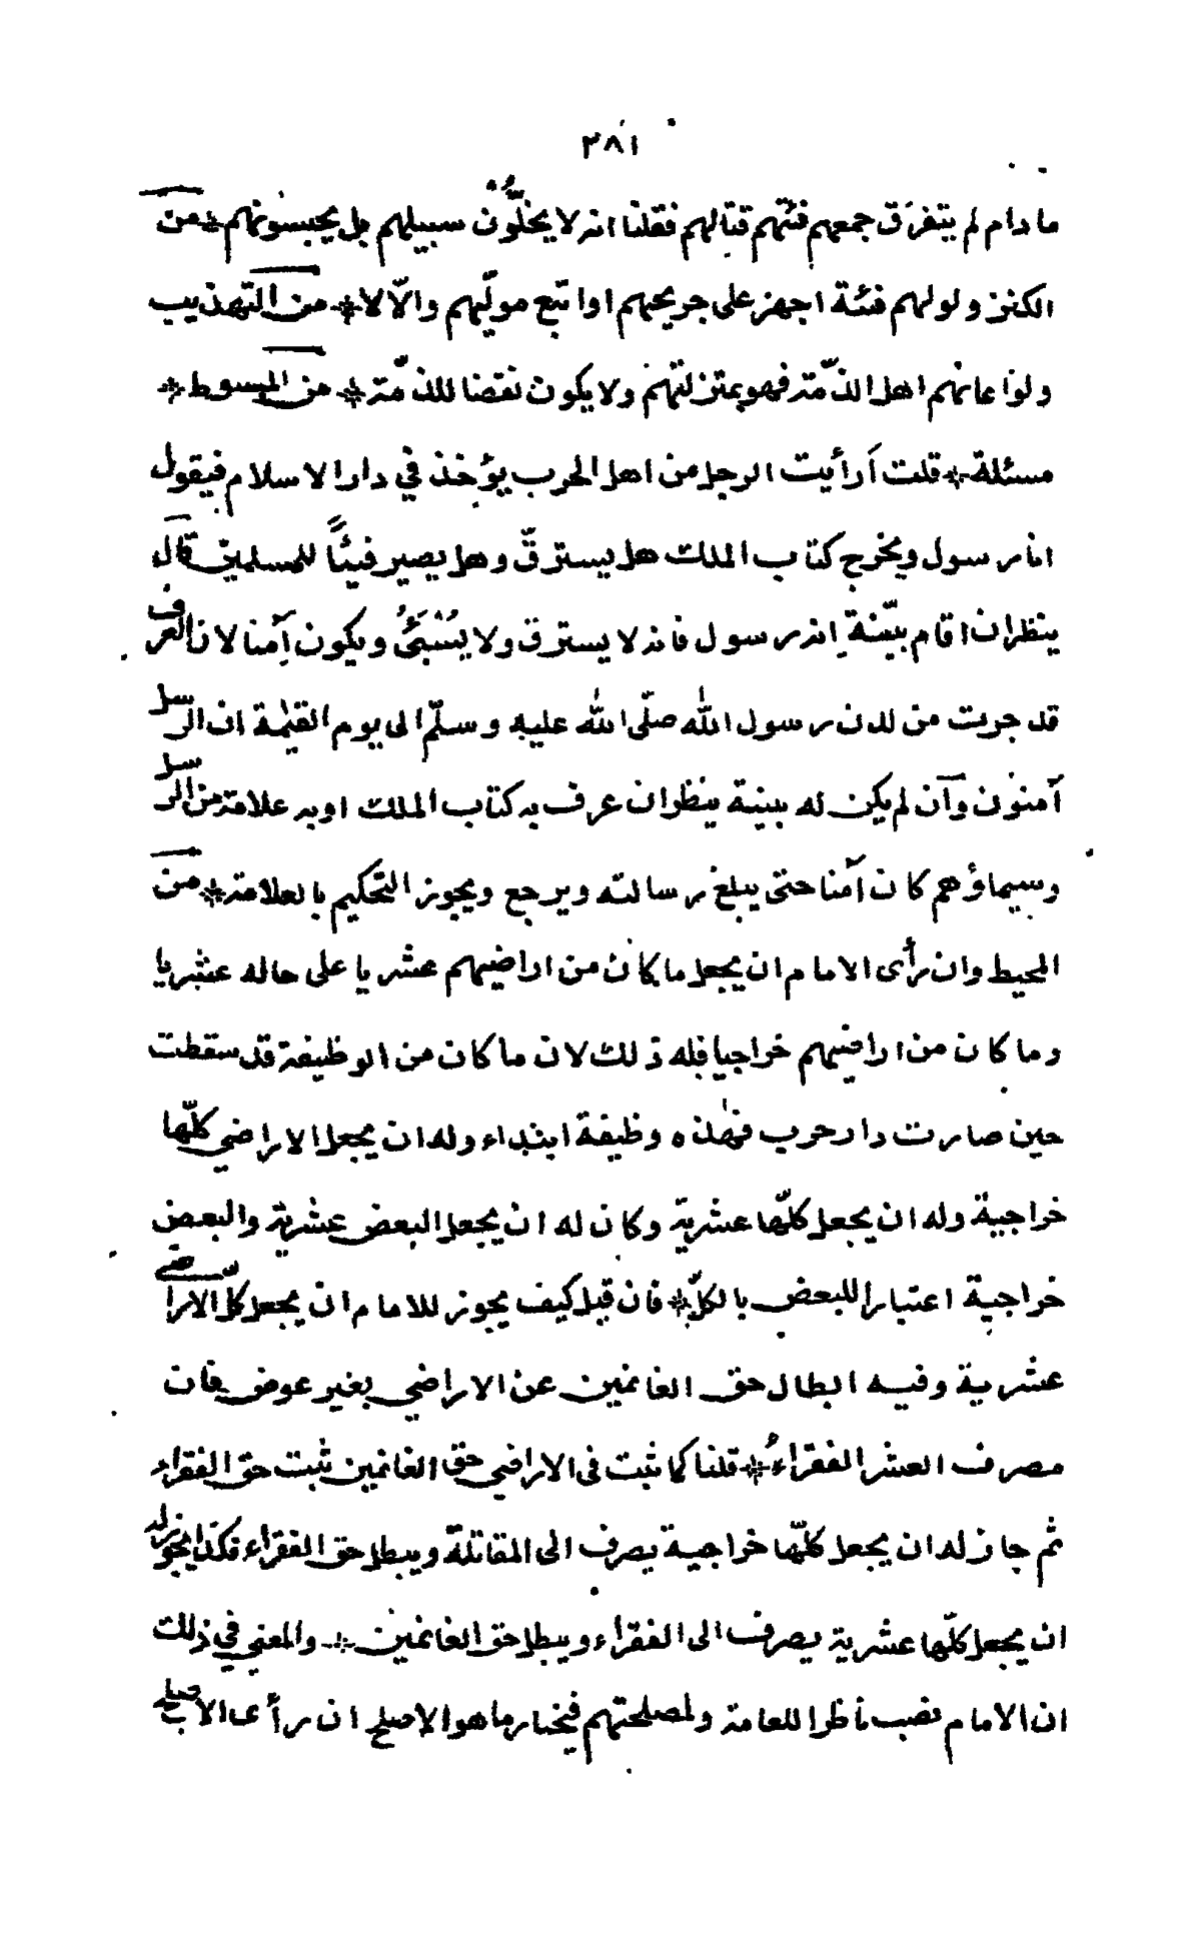 ٣٨١
ما دام لم يتفرق جمعهم فئتهم قتالهم فقلنا انه لا يخلّون سبيلهم بل يحبسونهم * من
الكنز ولو لهم فئة اجهز على جريحهم او اتبع موليهم والّا لا * من التهذيب
ولو اعانهم اهل الذمّة فهو بمنزلتهم ولا يكون نقضا للذمّة * من المبسوط *
مسئلة * قلت أرأيت الرجل من اهل الحرب يؤخذ في دار الاسلام فيقول
انا رسول ويخرج كتاب الملك هل يسترقّ وهل يصير فيئاً للمسلمين قال
ينظر ان اقام بيّنة انه رسول فانه لا يسترق ولا يُسْبَىُٔ ويكون آمنا لان العرف
قد جرت من لدن رسول الله صلّى الله عليه وسلّم الى يوم القيٰمة ان الرسل
آمنون وان لم يكن له بينة ينظر ان عرف به كتاب الملك او به علامة من الرسل
وسيماؤهم كان آمنا حتى يبلغ رسالته ويرجع ويجوز التحكيم بالعلامة * من
المحيط وان رأى الامام ان يجعل ما كان من اراضيهم عشريا على حاله عشريا
وما كان من اراضيهم خراجيا فله ذلك لان ما كان من الوظيفة قد سقطت
حين صارت دار حرب فهٰذه وظيفة ابتداء وله ان يجعل الاراضي كلّها
خراجية وله ان يجعل كلّها عشرية وكان له ان يجعل البعض عشرية والبعض
خراجية اعتبارا للبعض بالكلّ * فان قيل كيف يجوز للامام ان يجعل كلّ الاراضي
عشرية وفيه ابطال حق الغانمين عن الاراضي بغير عوض فان
مصرف العشر الفقراءُ * قلنا كما ثبت فى الاراضي حق الغانمين ثبت حق الفقراء
ثم جاز له ان يجعل كلّها خراجية يصرف الى المقاتلة ويبطل حق الفقراء فكذا يجوز له
ان يجعل كلّها عشرية يصرف الى الفقراء ويبطل حق الغانمين * والمعنى في ذلك
ان الامام نصب ناظرا للعامة ولمصلحتهم فيختار ما هو الاصلح ان رأى الاصلح